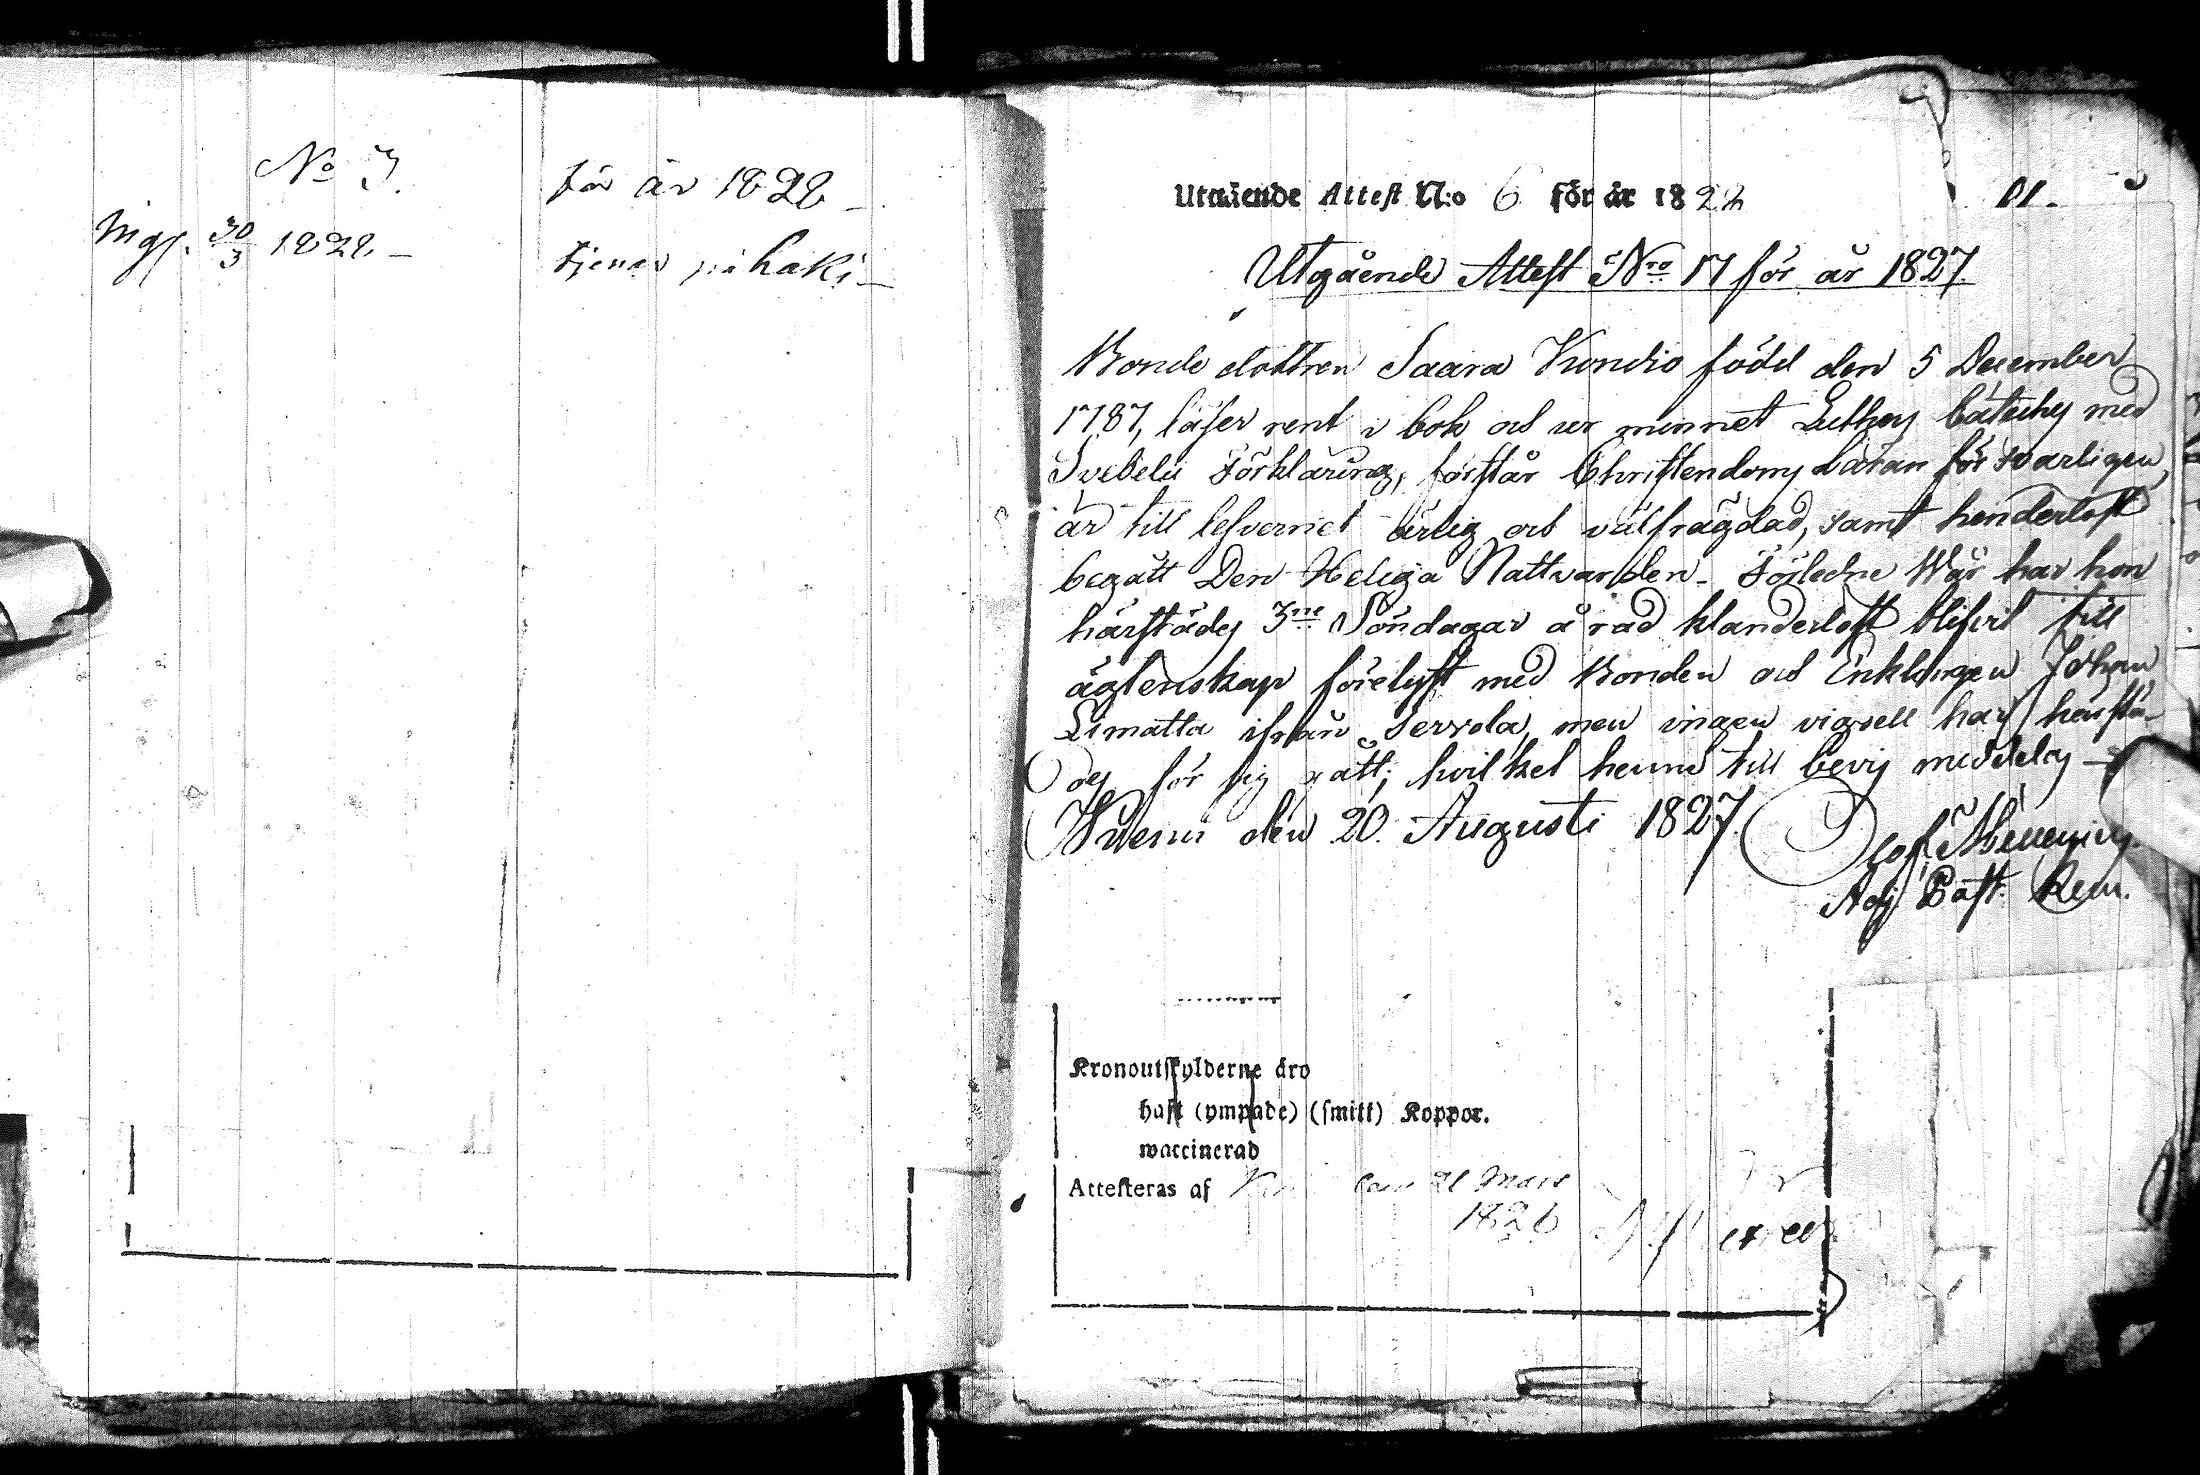 No 3.
för år 1828 –
Ingf. 30/3 1828. –
tjenar på Laki –
Utgående Attest N:o 6 för år 1822
11.
Utgående Attest Nro 17 för år 1827.
Bonde dottren Saara Kondio född den 5 December
1787, läser rent i bok och ur minnet Luthers Cateches med
Svebelii Förklaring, förstår Christendoms Läran försvarligen,
är till lefvernet ärlig och välfrägdad, samt hinderlöst
begått Den Heliga Nattvarden. Förledne Wår har hon
härstädes 3ne Söndagar å rad klanderlöst blifvit till
ägtenskap förelyst med Bonden och Enklingen Johan
Limatta ifrån Servola, men ingen vigsell har härstä-
des för sig gått; hvilket henne till bevis meddelas –
den 20 Augusti 1827.
Olof
Adj Past. Kem.
Kronoutskylderne äro
haft (ympade) (smitt) Koppor.
waccinerad
Attesteras af 21 Mars
1826